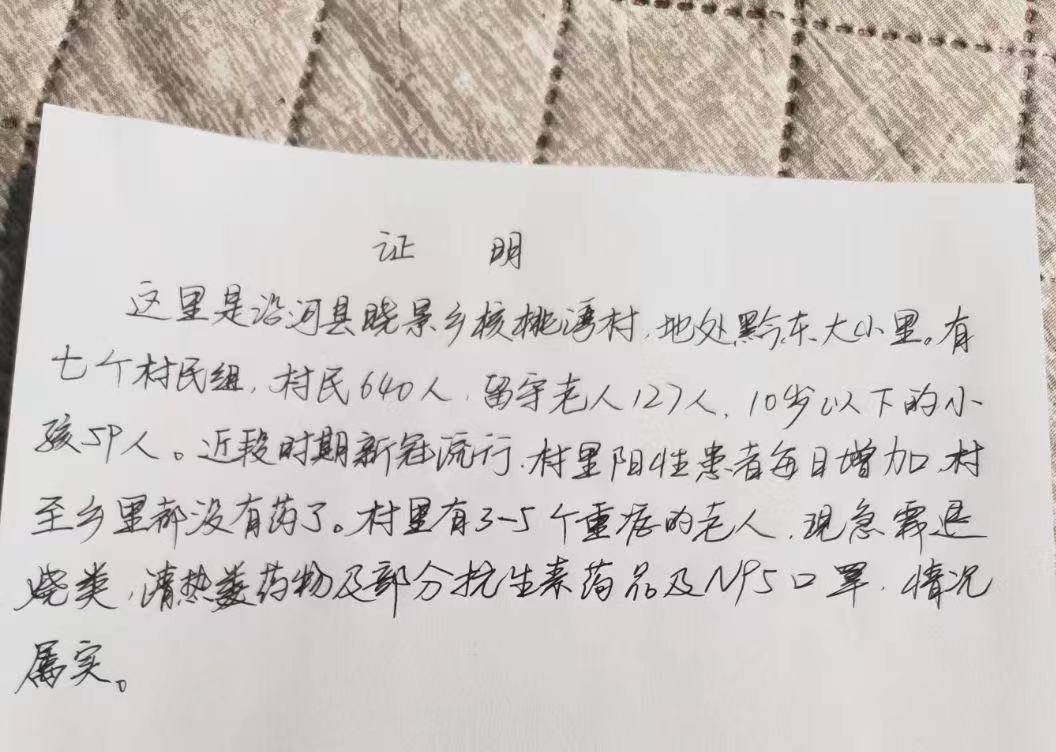 证 明
这里是沿河县晓景乡核桃湾村,地处黔东大小里。有
七个村民组,村民640人,留守老人127人,10岁以下的小
孩59人。近段时期新冠流行,村里阳性患者每日增加,村
至乡里都没有药了。村里有3-5个重症的老人,现急需退
烧类,清热类药物及部分抗生素药品及N95口罩,情况
属实。